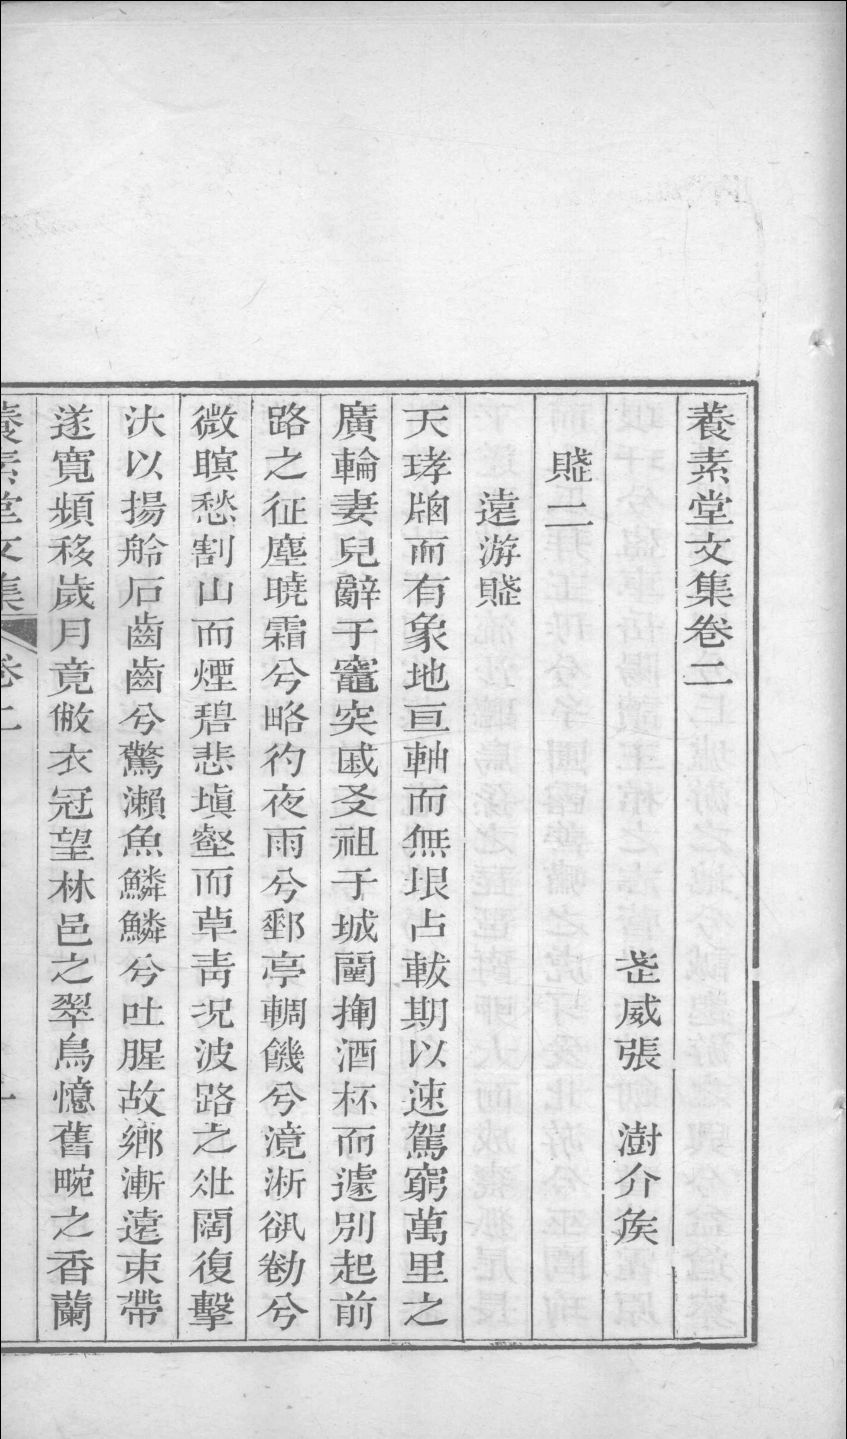 養素堂文集卷二
武威張澍介矦
賦二
遠游賦
天㻖牕而有象地亘軸而無垠占軷期以速駕窮萬里之
廣輪妻兒辭于竈突戚叐祖于城闉掬酒杯而遽別起前
路之征塵曉霜兮略彴夜雨兮郵亭輖饑兮滰淅谻勌兮
微瞑愁割山而煙碧悲塡壑而草靑況波路之壯闊復擊
汏以揚舲石齒齒兮驚瀨魚鱗鱗兮吐腥故鄉漸遠束帶
遂寬頻移歲月竟敝衣冠望林邑之翠鳥憶舊畹之香蘭
養素堂文集 卷二